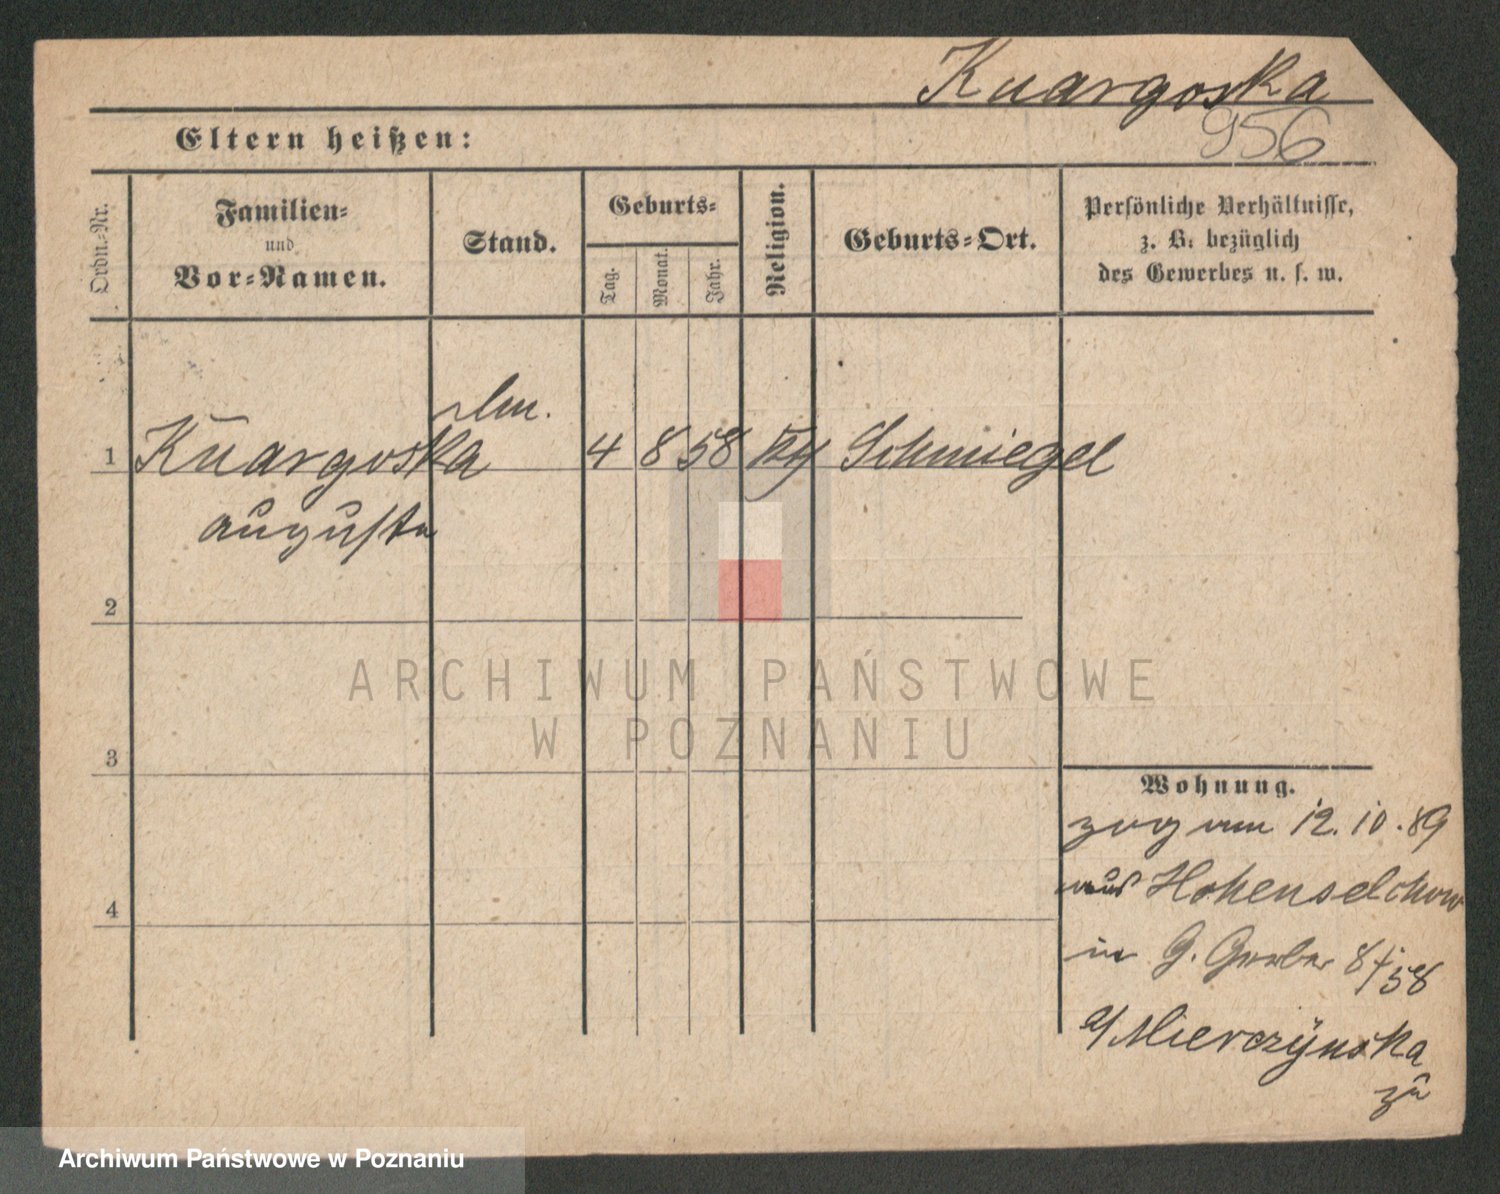 Kuargoska
956
Eltern heißen:
Ordn.-Nr.
Familien-
und
Vor-Namen.
Stand.
Geburts-
Tag.
Monat.
Jahr.
Religion.
Geburts-Ort.
Persönliche Verhältnisse,
z. B. bezüglich
des Gewerbes u. s. w.
1 Kuargoska 4 8 58 Schmiegel
Augusta
2
3
4
Wohnung.
zog am 12.10.89
aus Hohenselchow
in G. Gerber 8/58
a/ Mierczynska
zu
ARCHIWUM PAŃSTWOWE
W POZNANIU
Archiwum Państwowe w Poznaniu